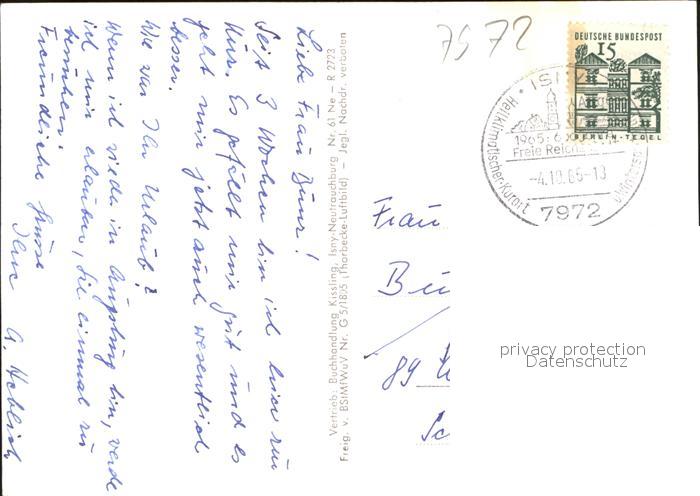 Liebe Frau Bunz!
Seit 3 Wochen bin ich hier zur
Kur. Es gefällt mir gut und es
geht mir jetzt auch wesentlich
besser.
Wie war Ihr Urlaub?
Wenn ich wieder in Augsburg bin, werde
ich mir erlauben, Sie einmal zu
Freundliche Grüsse
Ihre
Vertrieb: Buchhandlung Kissling, Isny-Neutrauchburg Nr. 61 Ne – R 2723
Freig. v. BStMfWuV Nr. G 5/1805 (Thorbecke-Luftbild) – Jegl. Nachdr. verboten
7972
DEUTSCHE BUNDESPOST
15
BERLIN-TEGEL
ISNY
1965: 600
Freie Reichs
-4.10.65-13
Heilklimatischer-Kurort
Winterso
7972
Frau
Bu
89
Sc
privacy protection
Datenschutz